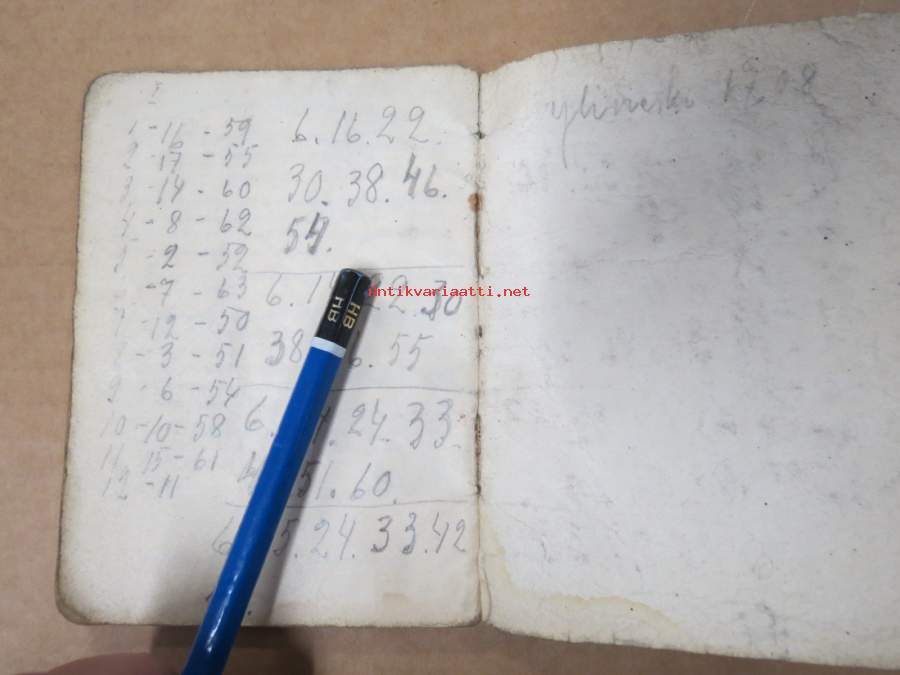 I
1 - 16 - 59
2 - 17 - 55
3 - 14 - 60
4 - 8 - 62
5 - 2 - 52
- 7 - 63
7 - 12 - 50
- 3 - 51
9 - 6 - 54
10 - 10 - 58
11 15 - 61
12 - 11
6. 16. 22.
30. 38. 46.
54.
6. 22. 30
38 55
6. 24. 33.
51. 60.
6 5. 24. 33. 42
1908
antikvariaatti.net
HB
HB